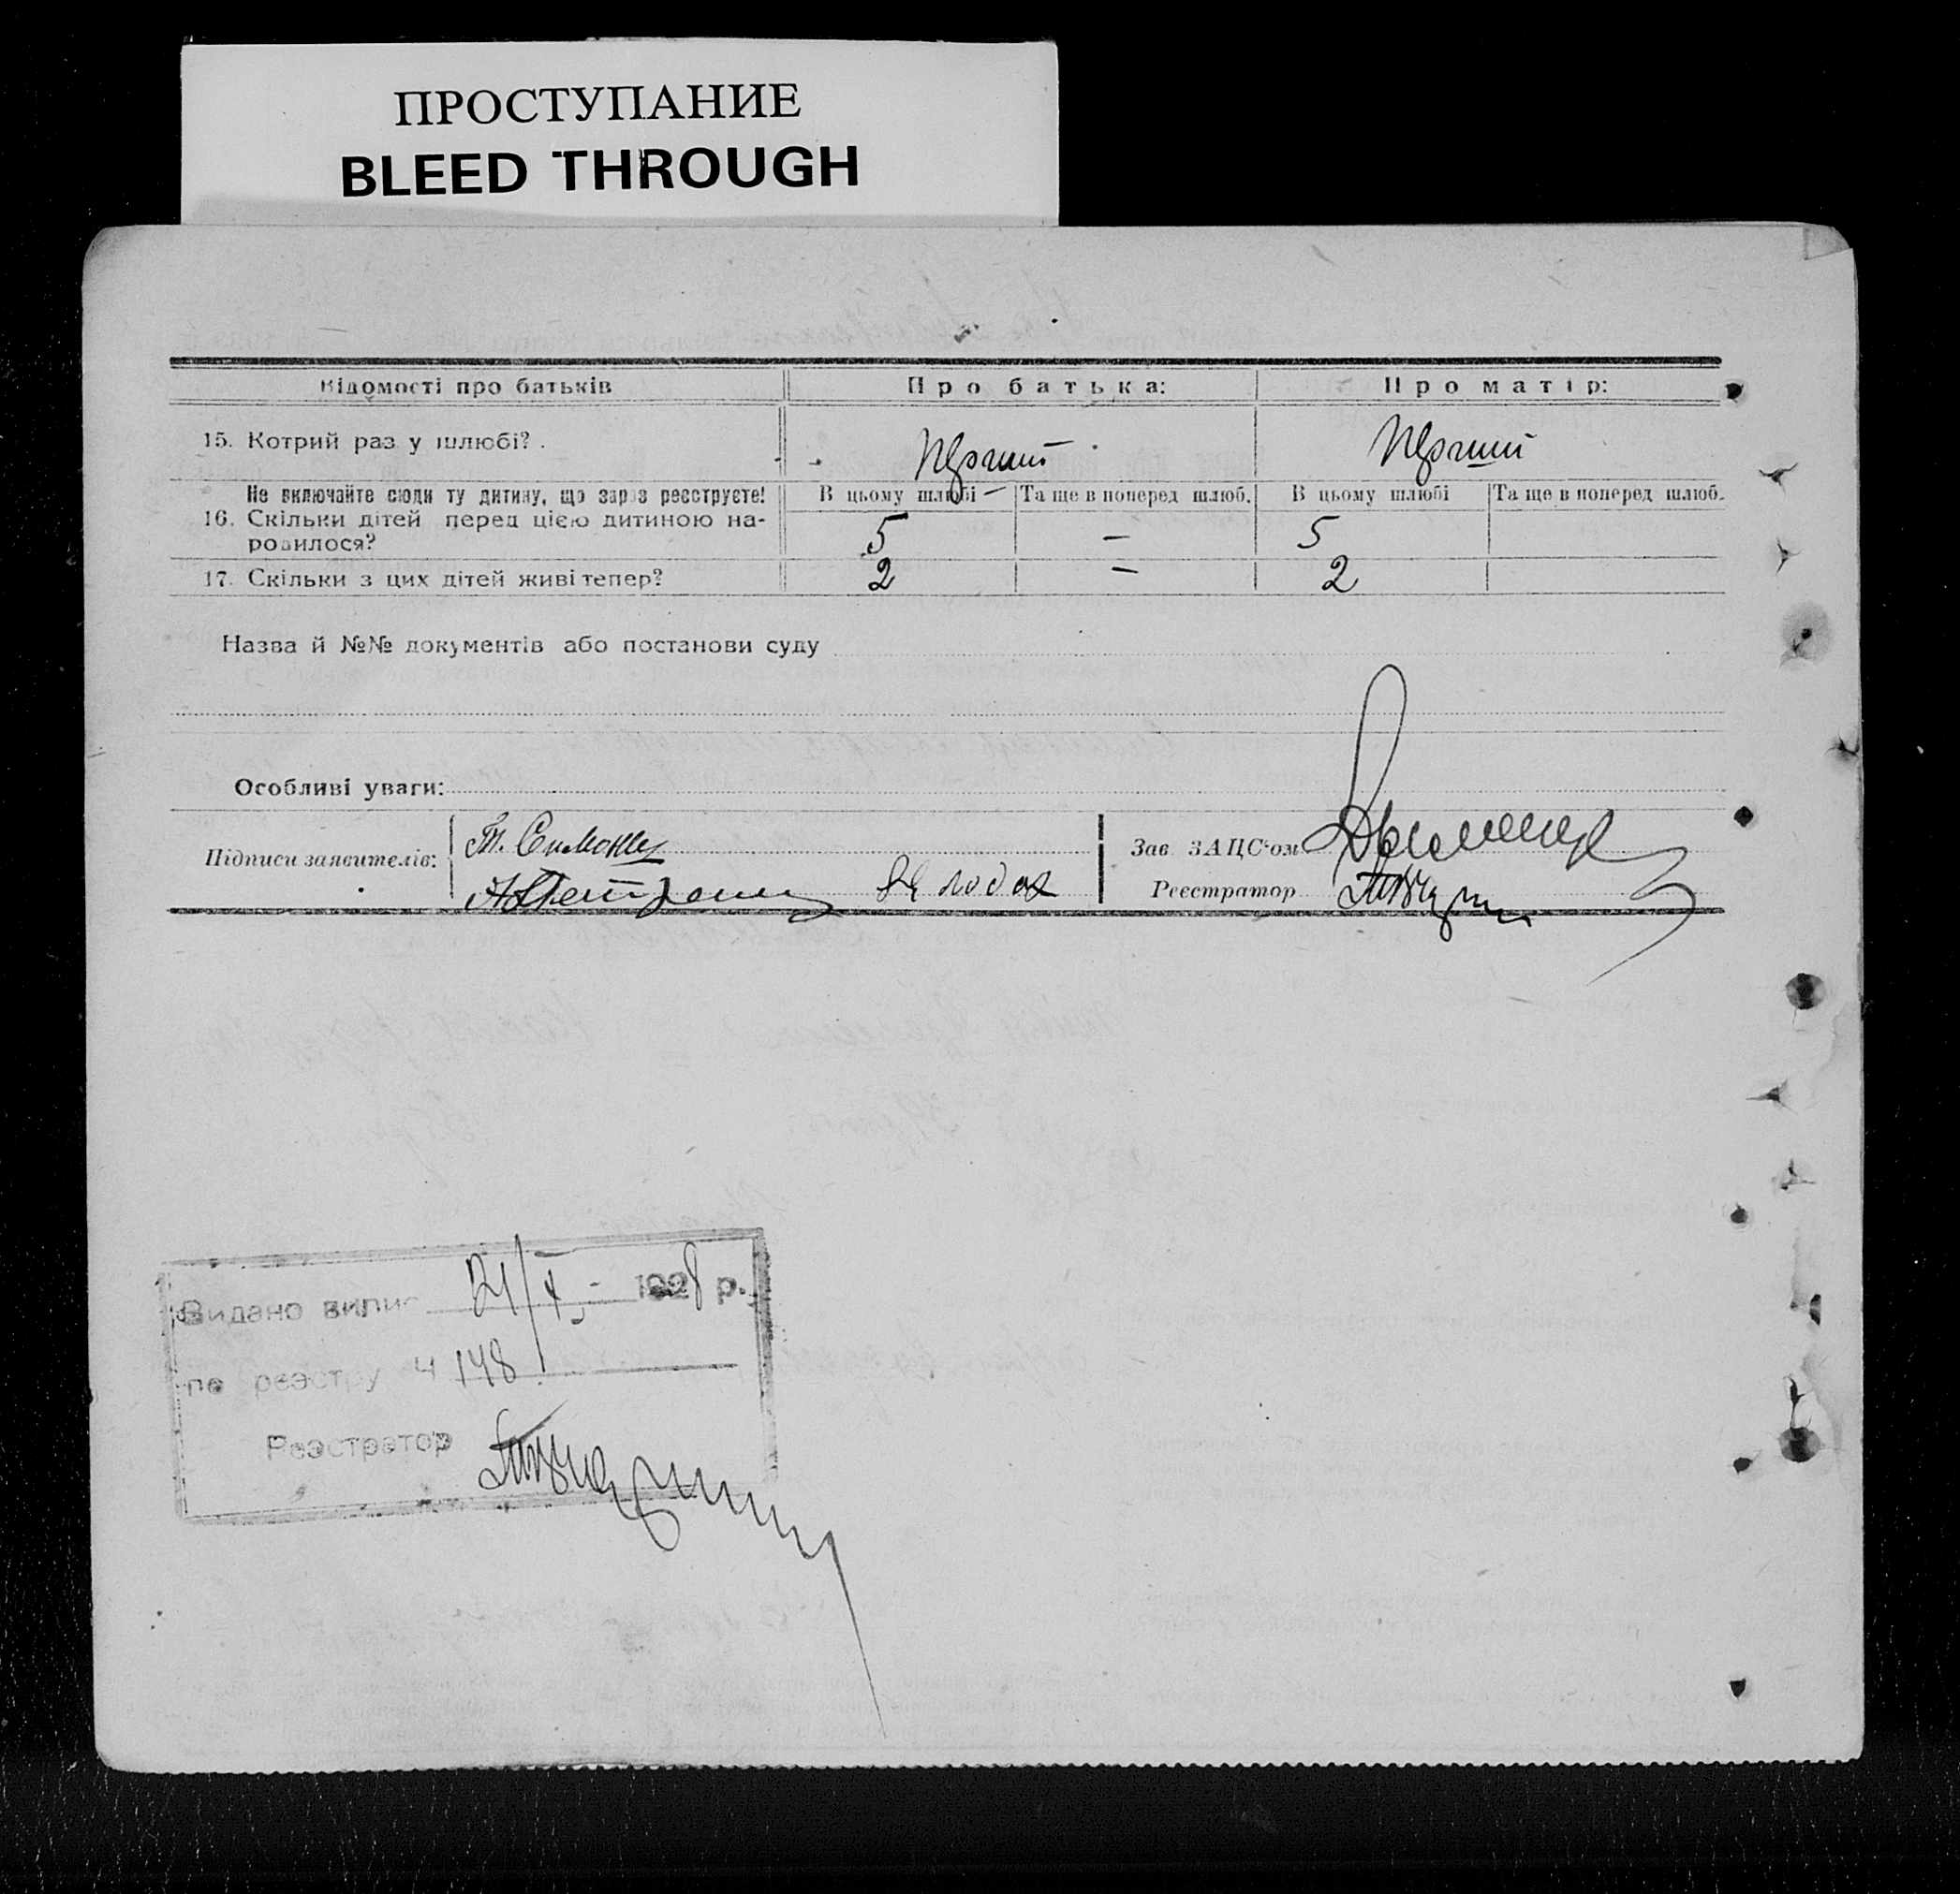 ПРОСТУПАНИЕ
BLEED THROUGH
Відомості про батьків Про батька: Про матір:
15. Котрий раз у шлюбі? . Перший Перший
Не включайте сюди ту дитину, що зараз реєструєте! В цьому шлюбі — Та ще в поперед шлюб. В цьому шлюбі Та ще в поперед шлюб.
16. Скільки дітей перед цією дитиною на- 5 — 5
родилося?
17. Скільки з цих дітей живі тепер? 2 — 2
Назва й №№ документів або постанови суду
Особливі уваги:
Підписи заявителів:
Зав ЗАЦС'ом
Реєстратор
Видано випис 21/X - 1928 р.
по реэстру Ч 148
Реэстратор